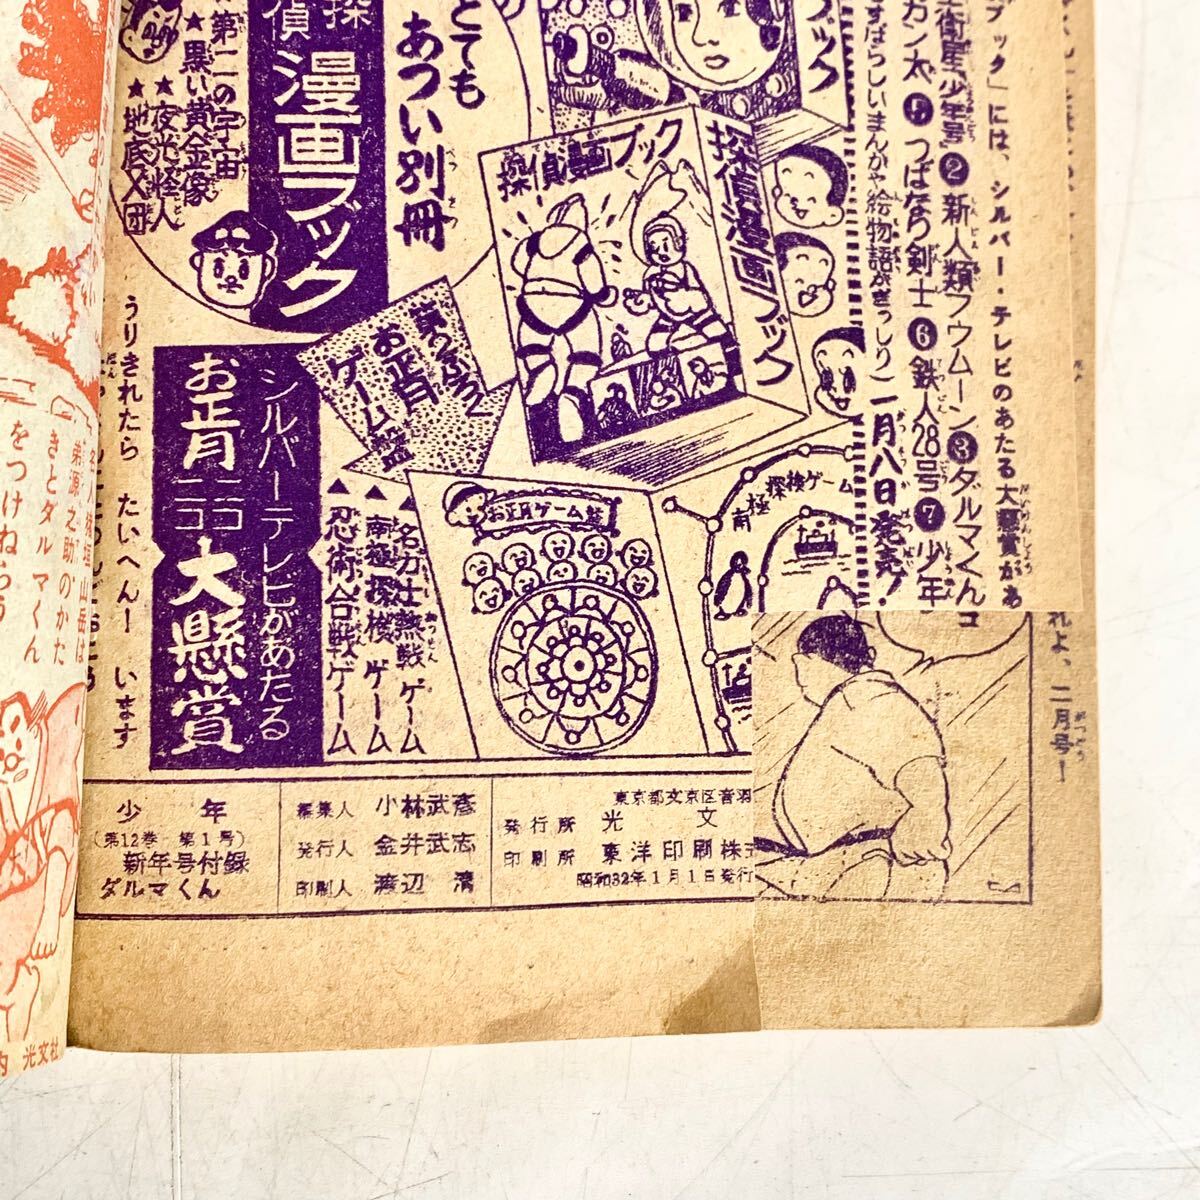 ブック」には、シルバー・テレビのあたる大懸賞があ
衛星少年号❷新人類フウムーン❸ダルマくん
カン太❺つばなり剣士❻鉄人28号❼少年
すばらしいまんがや絵物語がぎっしり
二月八日発売!
れよ、二月号!
ブック
とても
あつい別冊
探偵漫画ブック
探偵漫画ブック
探偵
漫画ブック
★第二の宇宙
★黒い黄金像
★夜光怪人
★地底X団
お正月
ゲーム盤
シルバーテレビがあたる
お正月ニコニコ大懸賞
うりきれたら たいへんー います
お正月ゲーム盤
▲名力士熱戦ゲーム
▲南極探検ゲーム
▲忍術合戦ゲーム
南極探検ゲーム
少年
(第12巻 第1号)
新年号付録
ダルマくん
編集人 小林武彦
発行人 金井武志
印刷人 渡辺 清
東京都文京区音羽
発行所 光文
印刷所 東洋印刷株式
昭和32年1月1日発行
弟源之助のかた
きとダルマくん
をつけねらう
光文社